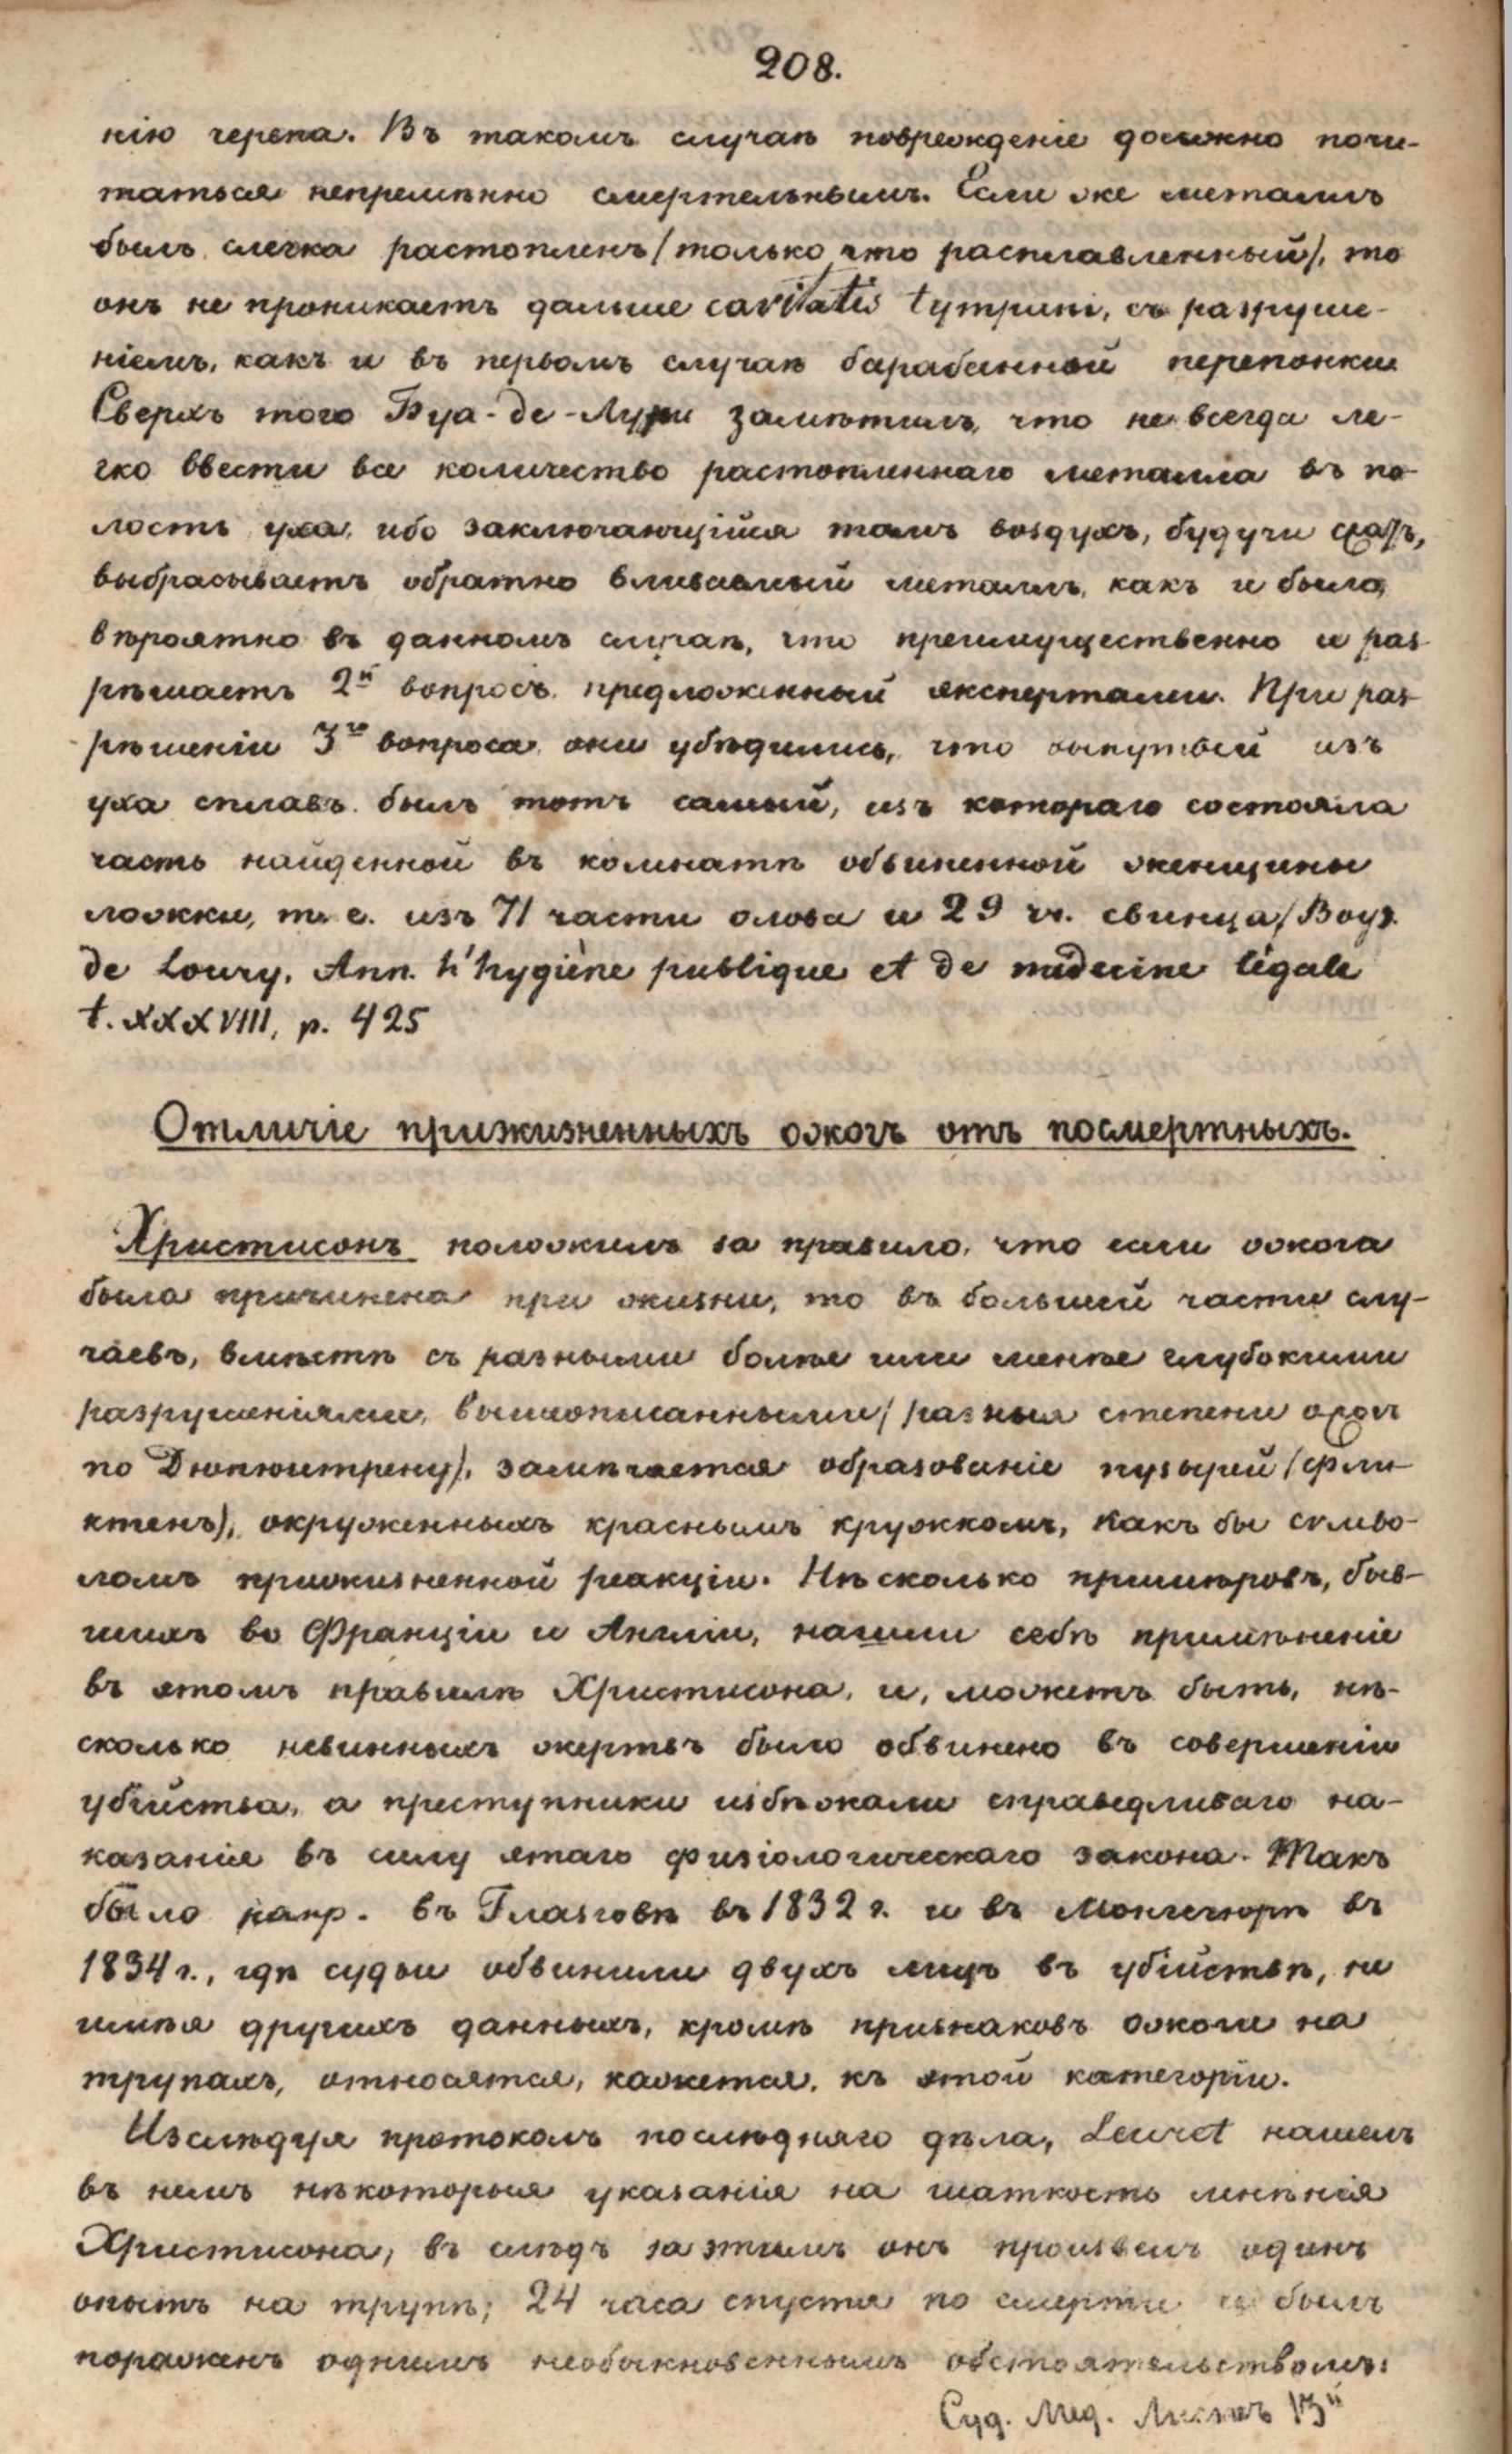 208.
нію черепа. Въ такомъ случаѣ поврежденіе должно почи-
таться непремѣнно смертельнымъ. Если же металлъ
былъ слегка растопленъ (только что расплавленный), то
онъ не проникаетъ дальше cavitatis tympani, съ разруше-
ніемъ, какъ и въ первомъ случаѣ барабанной перепонки
Сверхъ того Буа-де-Лури замѣтилъ, что не всегда ле-
гко ввести все количество растопленнаго металла въ по-
лость уха, ибо заключающійся тамъ воздухъ, будучи сжатъ,
выбрасываетъ обратно вливаемый металлъ, какъ и было,
вѣроятно въ данномъ случаѣ, что преимущественно и раз-
рѣшаетъ 2й вопросъ, предложенный экспертами. При раз-
рѣшеніи 3го вопроса они убѣдились, что вынутый изъ
уха сплавъ былъ тотъ самый, изъ котораго состояла
часть найденной въ комнатѣ обвиненной женщины
ложки, т. е. изъ 71 части олова и 29 ч. свинца (Boys.
de Loury. Ann. h'hygiène publique et de médecine légale
t. XXXVIII, p. 425
Отличіе прижизненныхъ ожогъ отъ посмертныхъ.
Христисонъ положилъ за правило, что если ожога
была причинена при жизни, то въ большей части слу-
чаевъ, вмѣстѣ съ разными болѣе или менѣе глубокими
разрушеніями, вышеописанными (разныя степени ожогъ
по Дюпюитрену), замѣчается образованіе пузырей (фли-
ктенъ), окруженныхъ краснымъ кружкомъ, какъ бы симво-
ломъ прижизненной реакціи. Нѣсколько примѣровъ, быв-
шихъ во Франціи и Англіи, нашли себѣ примѣненіе
въ этомъ правилѣ Христисона, и, можетъ быть, нѣ-
сколько невинныхъ жертвъ было обвинено въ совершеніи
убійства, а преступники избѣжали справедливаго на-
казанія въ силу этаго физіологическаго закона. Такъ
было напр. въ Глазговѣ въ 1832 г. и въ Монгеморѣ въ
1834 г., гдѣ судьи обвинили двухъ лицъ въ убійствѣ, не
имѣя другихъ данныхъ, кромѣ признаковъ ожоги на
трупахъ, относятся, кажется, къ этой категоріи.
Изслѣдуя протоколъ послѣдняго дѣла, Leuret нашелъ
въ немъ нѣкоторыя указанія на шаткость мнѣнія
Христисона, въ слѣдъ за этимъ онъ произвелъ одинъ
опытъ на трупѣ; 24 часа спустя по смерти и былъ
пораженъ однимъ необыкновеннымъ обстоятельствомъ:
Суд. Мед. Листъ 13й